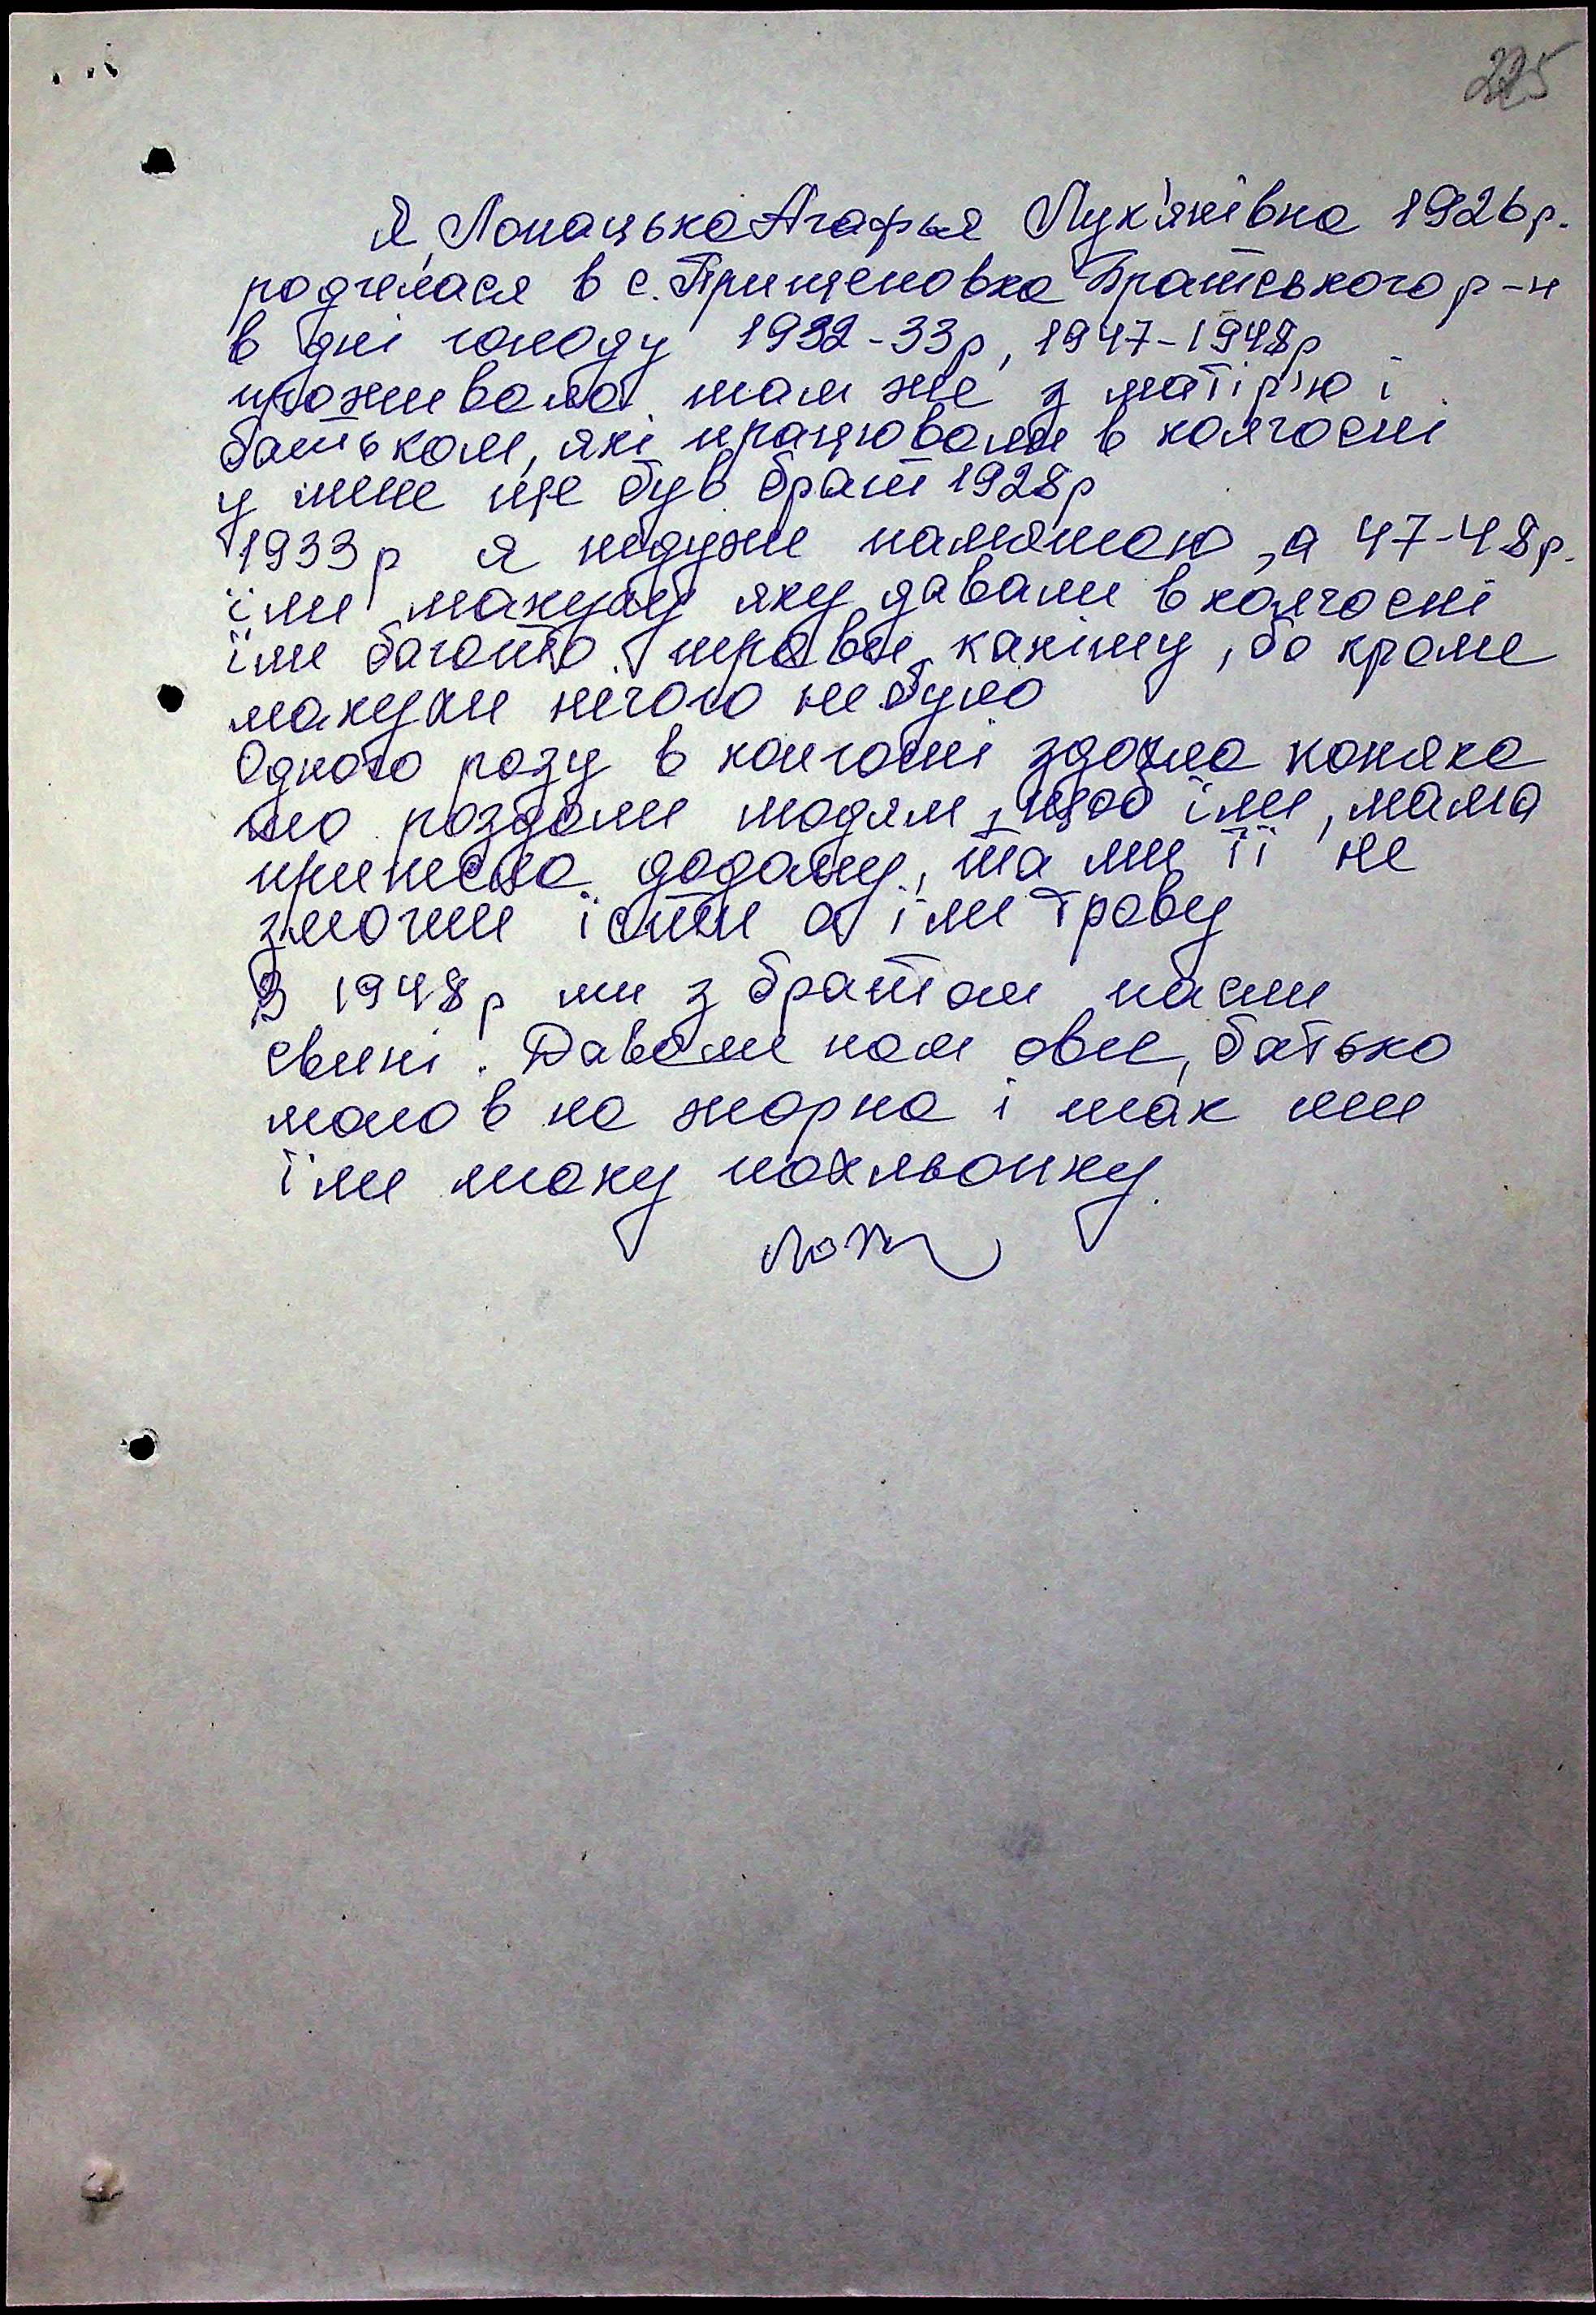 225
Я, Лопацька Агафья Лук'янівна 1926 р.
родилася в с. Прищеповка Братського р-н
в дні голоду 1932-33р, 1947-1948р
проживала там же з матір'ю і
батьком, які працювали в колгоспі
у мене ще був брат 1928р
1933р я недуже памятаю, а 47-48р.
їли макуху яку давали в колгоспі
їли багато трави, каніту, бо кроме
макухи нічого не було
Одного разу в колгоспі здохла коняка
то роздали людям, щоб їли, мама
принесла додому, та ми її не
змогли їсти а їли траву
В 1948р ми з братом пасли
свині. Давали нам овес, батько
молов на жорна і так ми
їли таку похльобку.